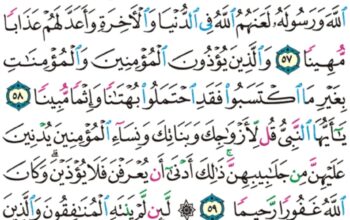 ٱللَّهَ وَرَسُولَهُۥ لَعَنَهُمُ ٱللَّهُ فِى ٱلدُّنْيَا وَٱلْءَاخِرَةِ وَأَعَدَّ لَهُمْ عَذَابًا
مُّهِينًا ٥٧ وَٱلَّذِينَ يُؤْذُونَ ٱلْمُؤْمِنِينَ وَٱلْمُؤْمِنَـٰتِ
بِغَيْرِ مَا ٱكْتَسَبُوا۟ فَقَدِ ٱحْتَمَلُوا۟ بُهْتَـٰنًا وَإِثْمًا مُّبِينًا ٥٨
يَـٰٓأَيُّهَا ٱلنَّبِىُّ قُل لِّأَزْوَٰجِكَ وَبَنَاتِكَ وَنِسَآءِ ٱلْمُؤْمِنِينَ يُدْنِينَ
عَلَيْهِنَّ مِن جَلَـٰبِيبِهِنَّ ۚ ذَٰلِكَ أَدْنَىٰٓ أَن يُعْرَفْنَ فَلَا يُؤْذَيْنَ ۗ وَكَانَ
ٱللَّهُ غَفُورًا رَّحِيمًا ٥٩ ۞ لَّئِن لَّمْ يَنتَهِ ٱلْمُنَـٰفِقُونَ وَٱلَّذِينَ